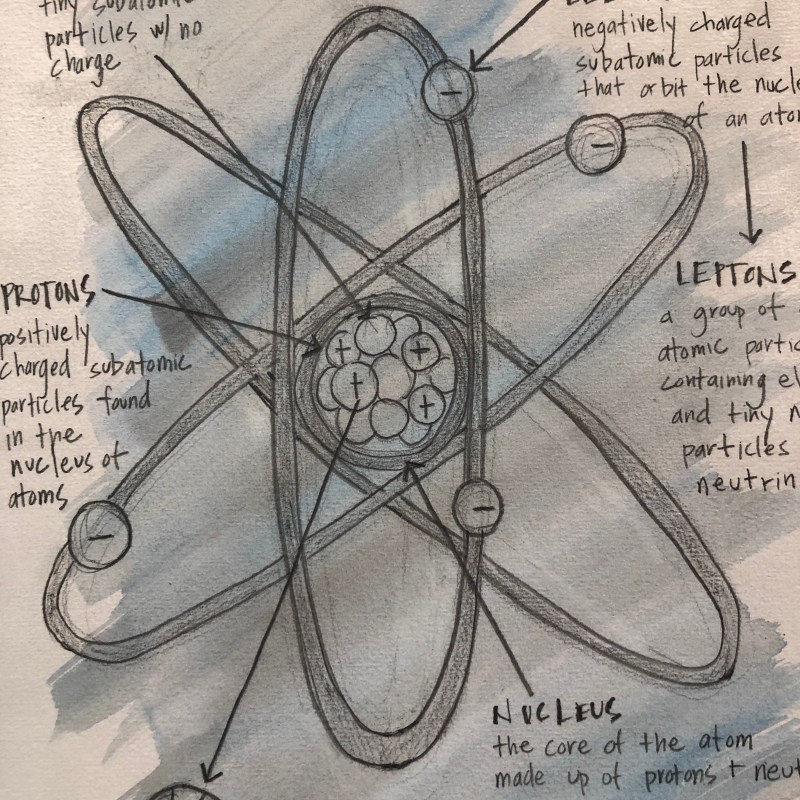 tiny subatomic
particles w/ no
charge
negatively charged
subatomic particles
that orbit the nucle
of an ato
PROTONS
positively
charged subatomic
particles found
in the
nucleus of
atoms
LEPTONS
a group of
atomic partic
containing el
and tiny n
particles
neutrin
NUCLEUS
the core of the atom
made up of protons + neut
−
−
−
−
+
+
+
+